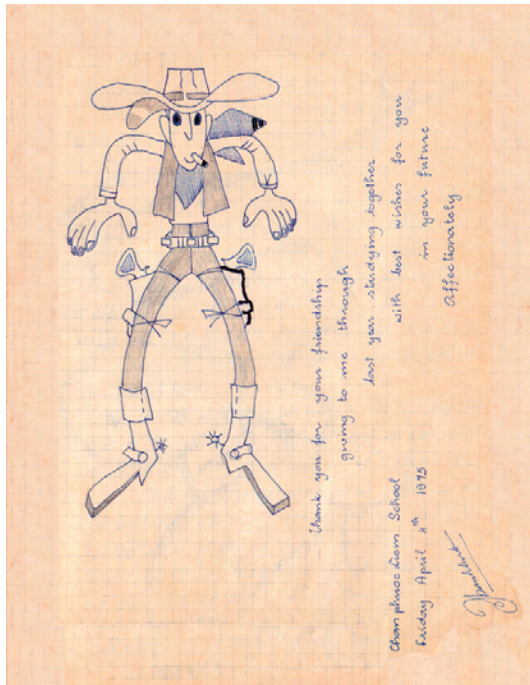 Thank you for your friendship
giving to me through
last year studying together
with best wishes for you
in your future
Affectionately
Chan phuoc Liem School
Friday April 4th 1975